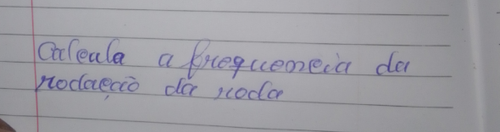 Calcula a frequencia da
rodação da roda